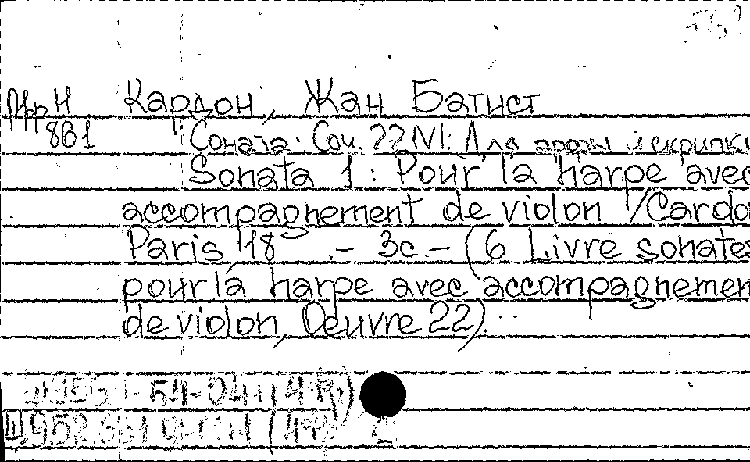 Кардон, Жан Батист
881 Соната: Соч. 22 N1: Для арфы и скрипки
Sonata 1: Pour la harpe avec
accompagnement de violon /Cardo
Paris, 18 .- 3c.- (6 Livre sonates
pour la harpe avec accompagnemen
de violon, Oeuvre 22).